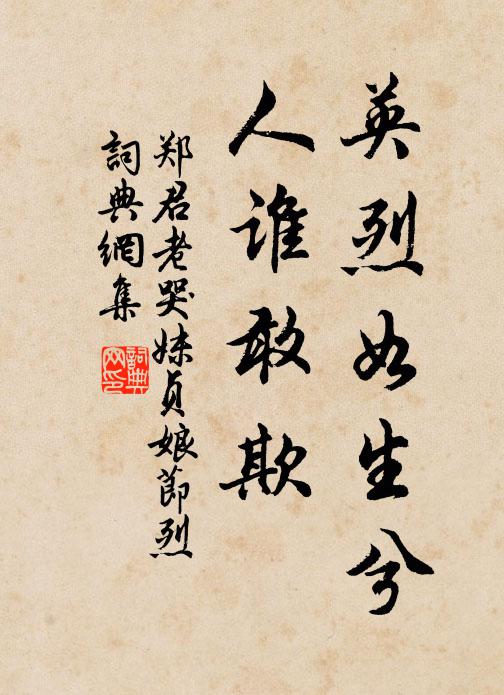 英烈如生兮
人谁敢欺
郑君老哭妹贞娘节烈
詞典網集
詞典網印